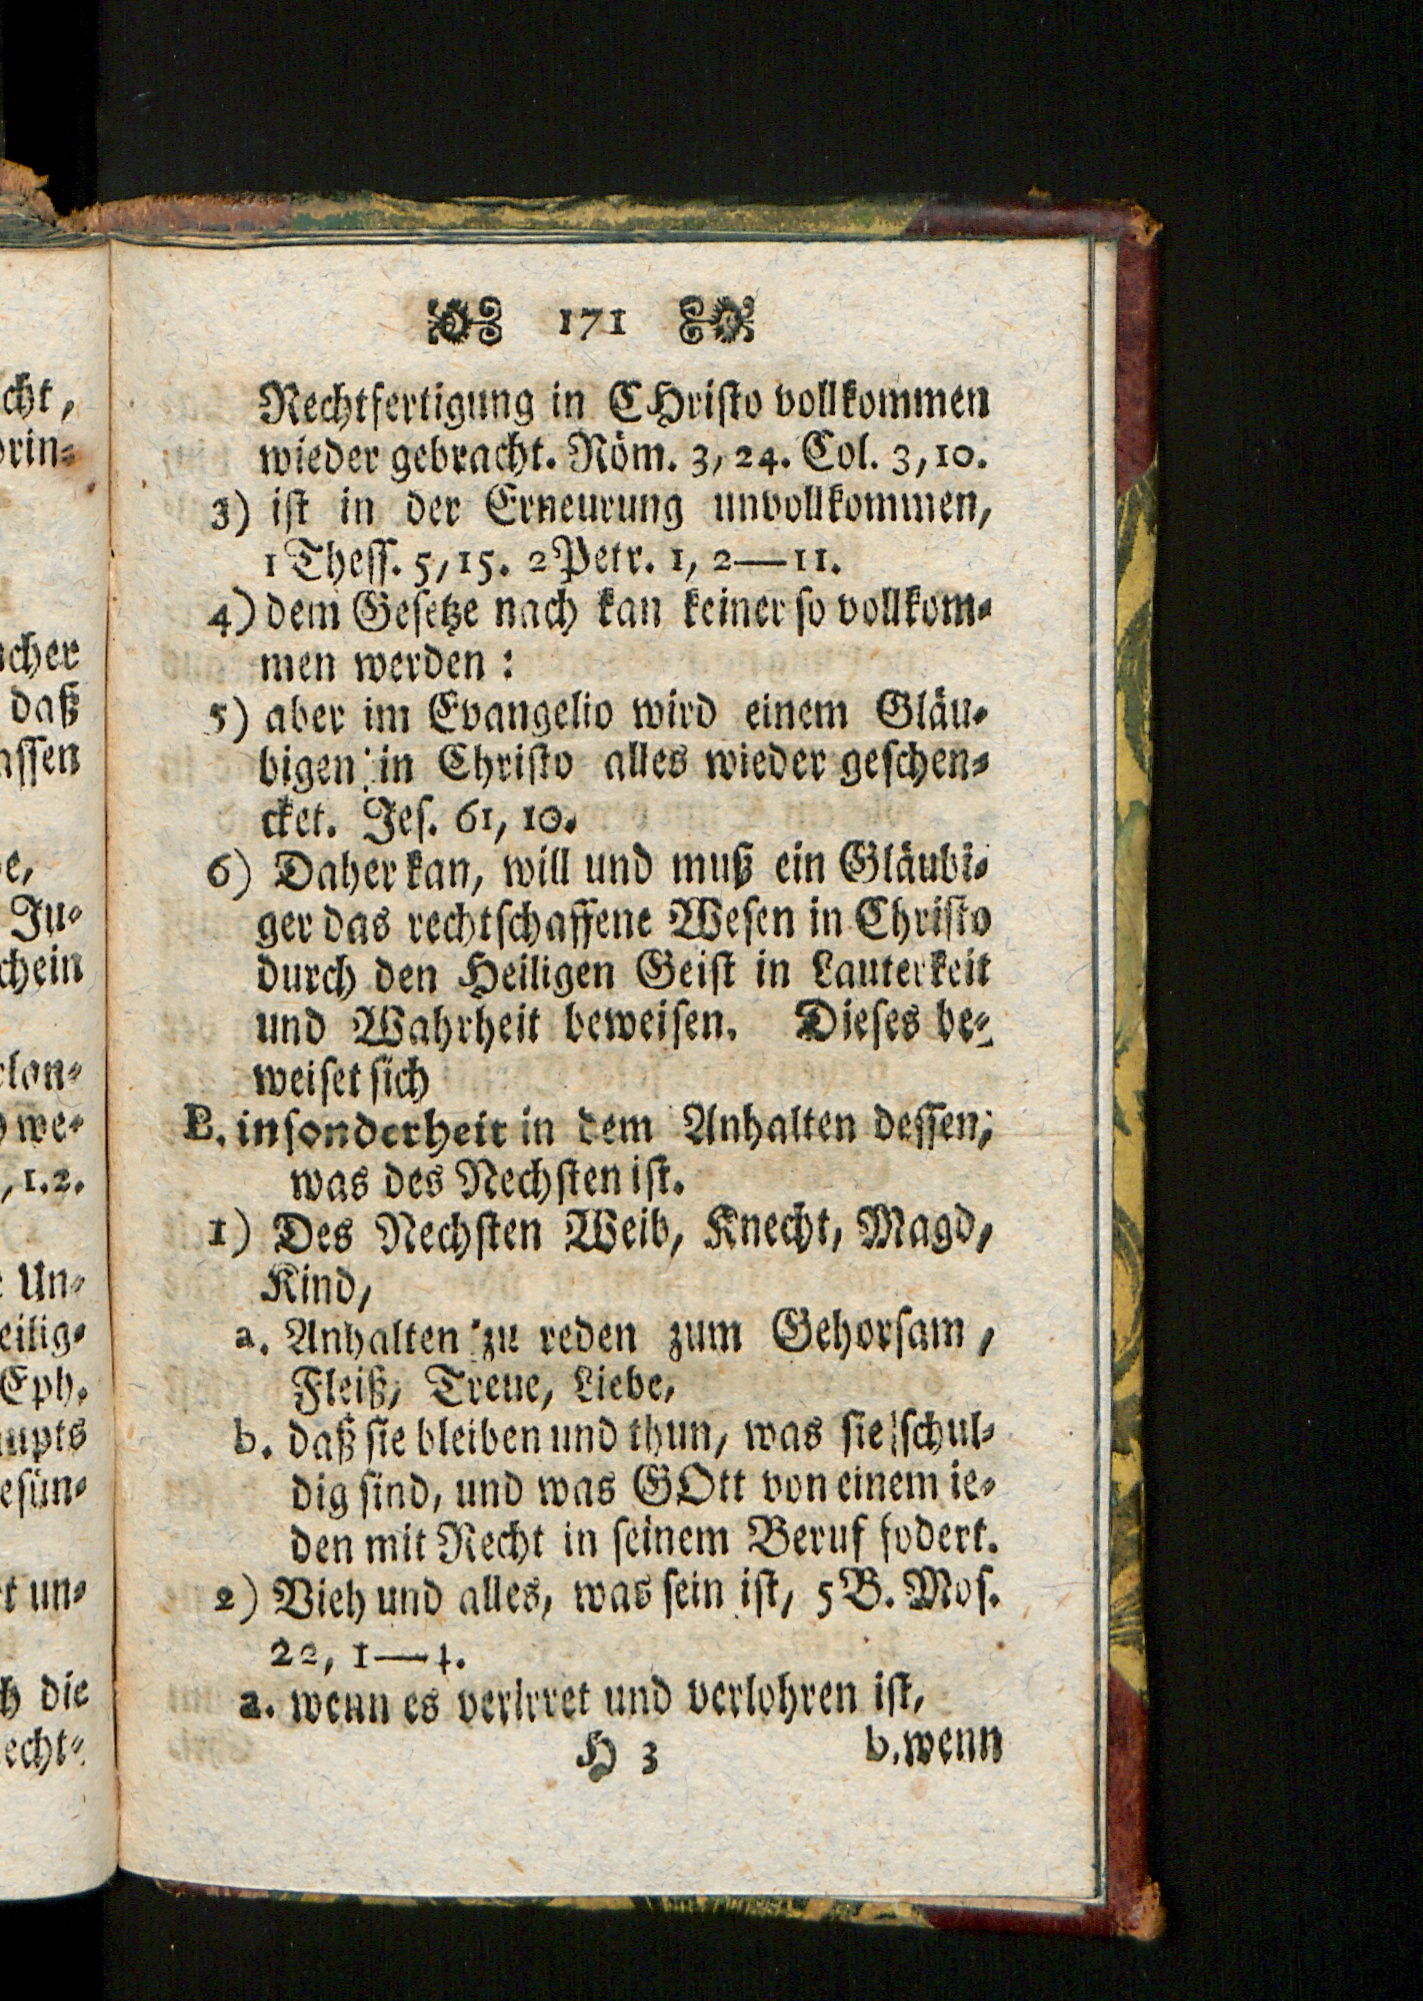 cht,
rin-
cher
daß
assen
e,
Ju-
chein
lan-
we-
, 1. 2.
Un-
eilig-
Eph.
upts
esün-
t un-
h die
echt-
171
Rechtfertigung in CHristo vollkommen
wieder gebracht. Röm. 3, 24. Col. 3, 10.
3) ist in der Erneurung unvollkommen,
1 Thess. 5, 15. 2 Petr. 1, 2—11.
4) dem Gesetze nach kan keiner so vollkom-
men werden:
5) aber im Evangelio wird einem Gläu-
bigen in Christo alles wieder geschen-
cket. Jes. 61, 10.
6) Daher kan, will und muß ein Gläubi-
ger das rechtschaffene Wesen in Christo
durch den Heiligen Geist in Lauterkeit
und Wahrheit beweisen. Dieses be-
weiset sich
B. insonderheit in dem Anhalten dessen,
was des Nechsten ist.
1) Des Nechsten Weib, Knecht, Magd,
Kind,
a. Anhalten zu reden zum Gehorsam,
Fleiß, Treue, Liebe,
b. daß sie bleiben und thun, was sie schul-
dig sind, und was GOtt von einem ie-
den mit Recht in seinem Beruf fodert.
2) Vieh und alles, was sein ist, 5 B. Mos.
22, 1—4.
a. wenn es verirret und verlohren ist,
H 3 b. wenn